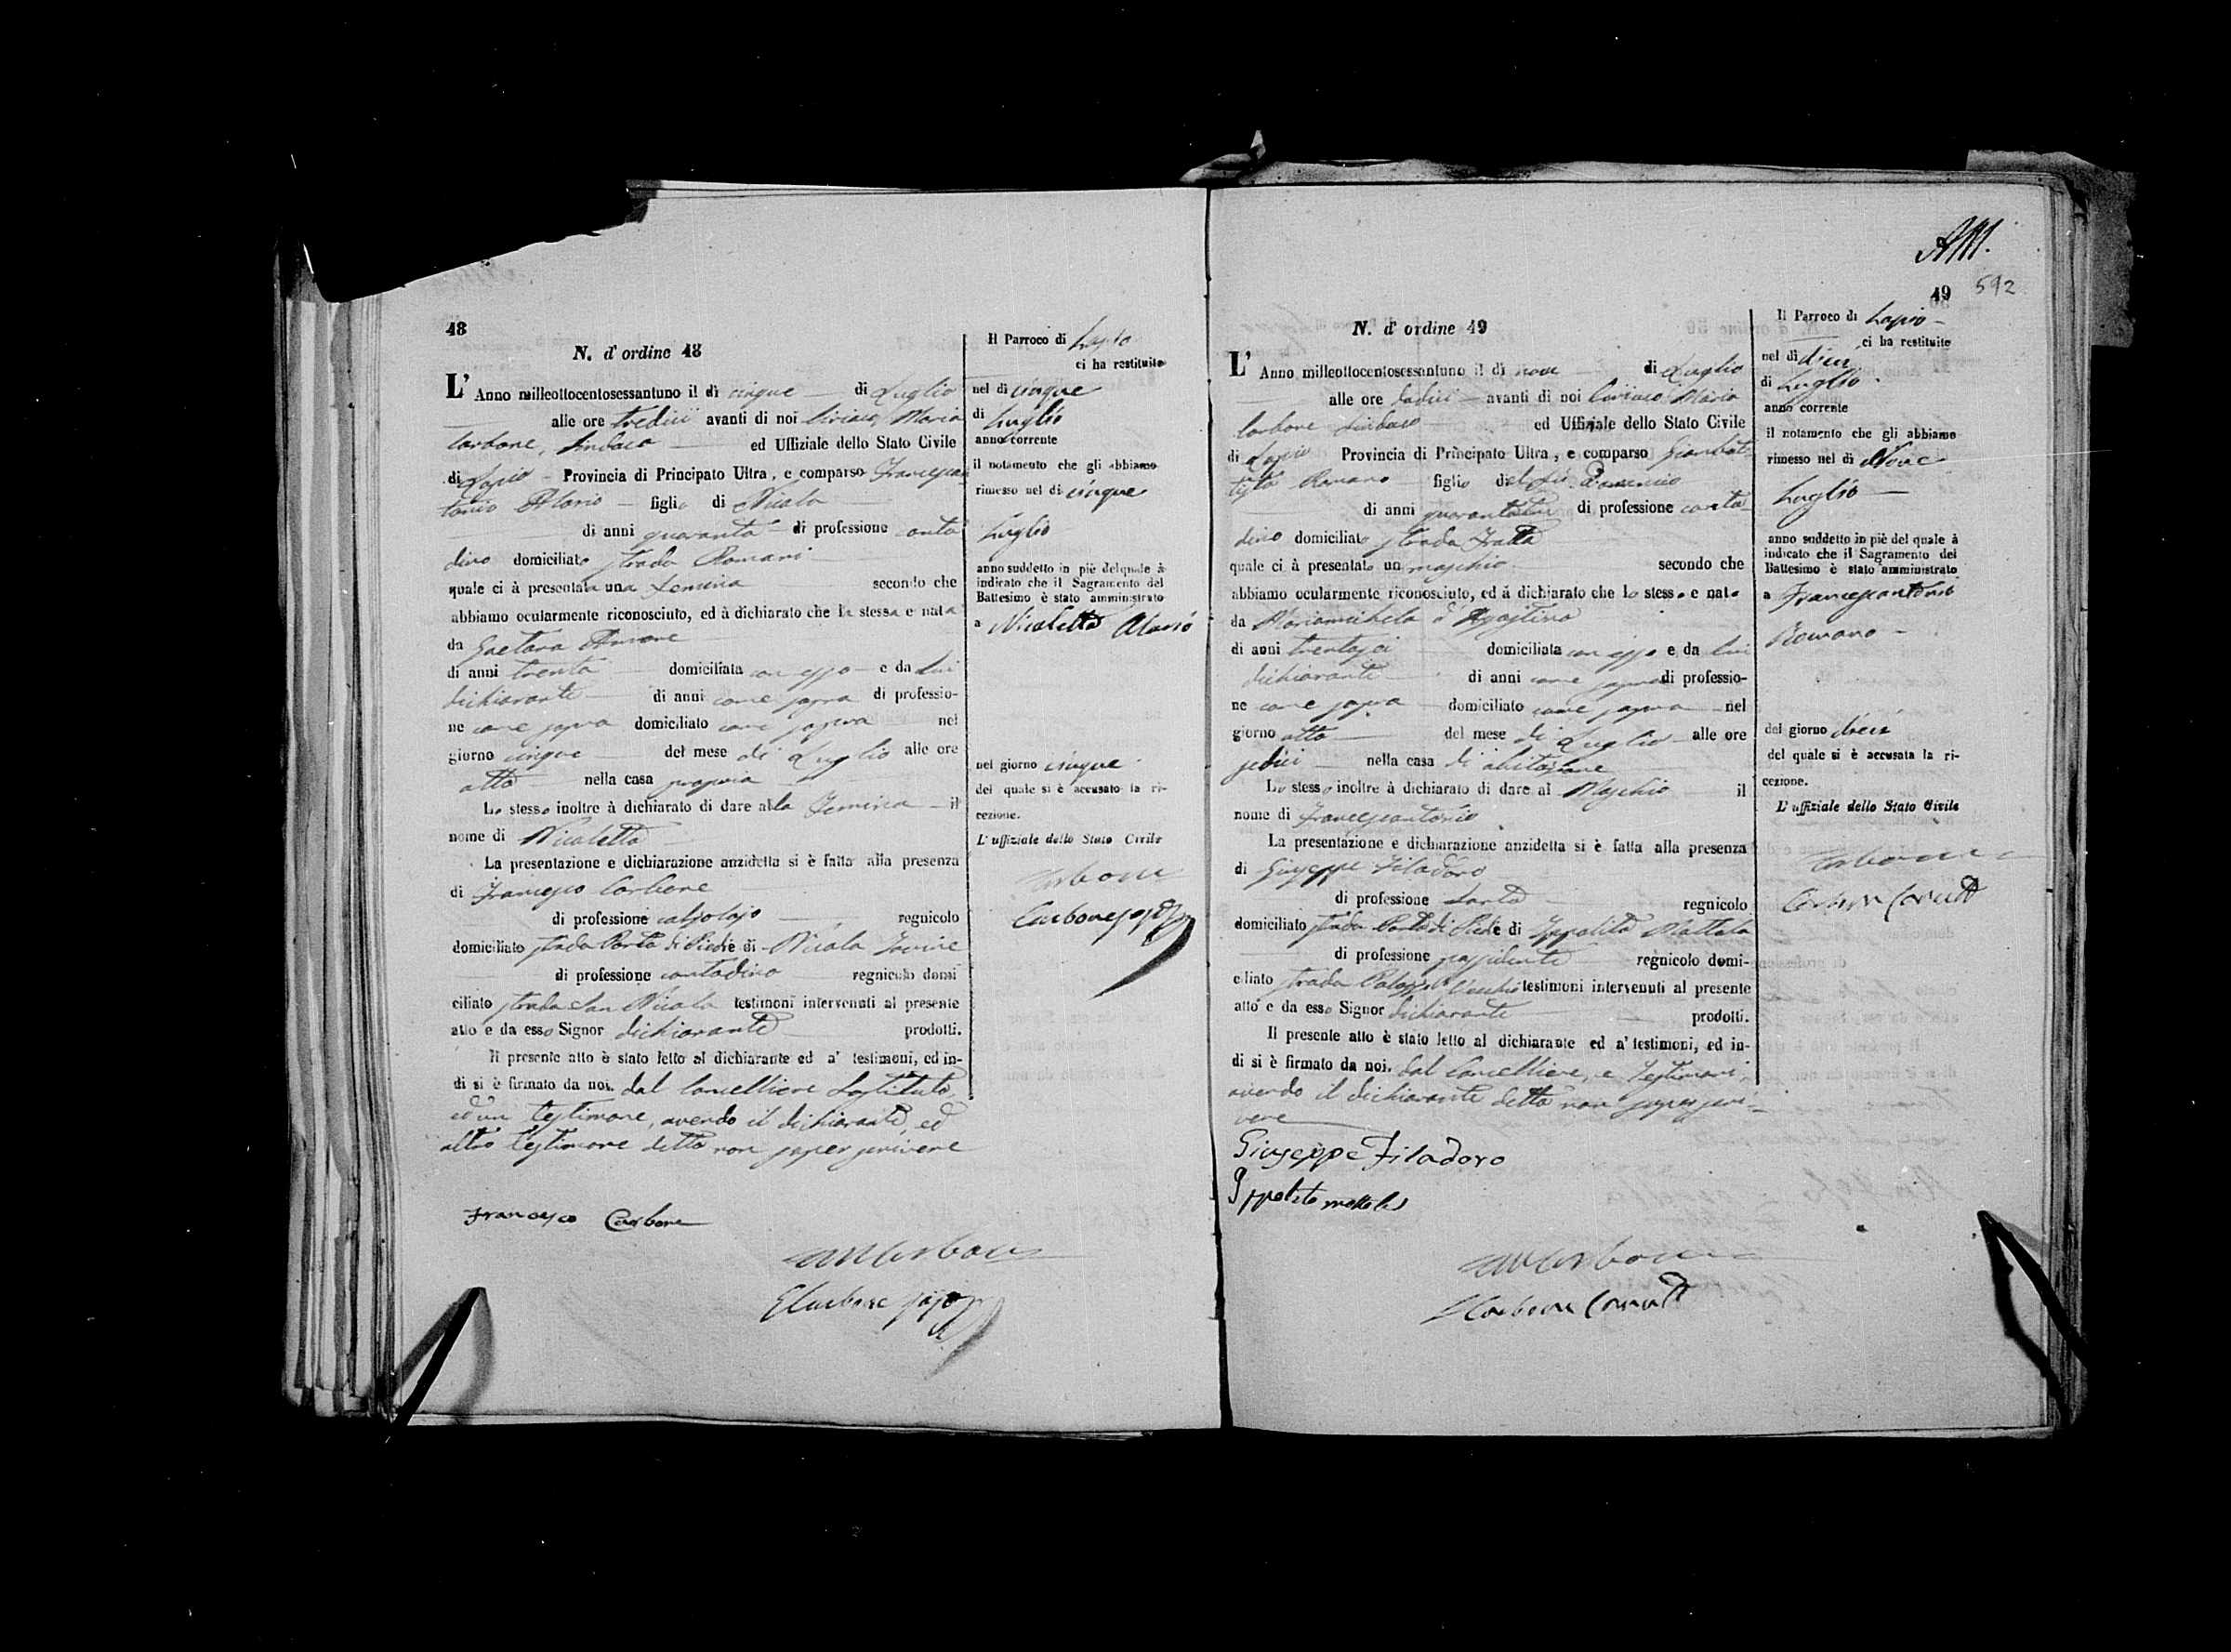 48
N. d' ordine 48
L' Anno milleottocentosessantuno il dì cinque di Luglio
alle ore tredici avanti di noi Ciriaco Maria
Carbone, Sindaco ed Uffiziale dello Stato Civile
di Lapio Provincia di Principato Ultra, e comparso Francescan
tonio figlio di Nicola
di anni quaranta di professione conta
dino domiciliato strada Romani
quale ci à presentata una Femina secondo che
abbiamo ocularmente riconosciuto, ed à dichiarato che la stessa e nata
da Gaetana
di anni trenta domiciliata con esso e da lui
dichiarante di anni come sopra di professio-
ne come sopra domiciliato come sopra nel
giorno cinque del mese di Luglio alle ore
otto nella casa propria
Lo stesso inoltre à dichiarato di dare alla Femina il
nome di Nicoletta
La presentazione e dichiarazione anzidetta si è fatta alla presenza
di Francesco Carbone
di professione calzolajo regnicolo
domiciliato strada Porta di Piedi e di Nicola Iovine
di professione contadino regnicolo domi
ciliato strada San Nicola testimoni intervenuti al presente
atto e da esso Signor dichiarante prodotti.
Il presente atto è stato letto al dichiarante ed a' testimoni, ed in-
di si è firmato da noi, dal Cancelliere Sostituto,
ed un testimone, avendo il dichiarante, ed
altro testimone detto non saper scrivere
Francesco Carbone
Il Parroco di Lapio
ci ha restituito
nel dì cinque
di Luglio
anno corrente
il notamento che gli abbiamo
rimesso nel dì cinque
Luglio
anno suddetto in piè del quale à
indicato che il Sagramento del
Battesimo è stato amministrato
a Nicoletta
nel giorno cinque
del quale si è accusato la ri-
cezione.
L' uffiziale dello Stato Civile
Carbone
49
592
N. d' ordine 49
L' Anno milleottocentosessantuno il dì nove di Luglio
alle ore dodici avanti di noi Ciriaco Maria
Carbone Sindaco ed Uffiziale dello Stato Civile
di Lapio Provincia di Principato Ultra, e comparso Giambat
tista Romano figlio del fu
di anni di professione conta
dino domiciliato strada Fratta
quale ci à presentato un maschio secondo che
abbiamo ocularmente riconosciuto, ed à dichiarato che lo stesso e nato
da Mariamichela d'Agostino
di anni trentasei domiciliata con esso e da lui
dichiarante di anni come sopra di professio-
ne come sopra domiciliato come sopra nel
giorno otto del mese di Luglio alle ore
sedici nella casa di abitazione
Lo stesso inoltre à dichiarato di dare al Maschio il
nome di Francescantonio
La presentazione e dichiarazione anzidetta si è fatta alla presenza
di Giuseppe Filadoro
di professione Sarto regnicolo
domiciliato strada Porta di Piedi e di Ippolito Mattola
di professione possidente regnicolo domi-
ciliato strada Palazzo Vecchio testimoni intervenuti al presente
atto e da esso Signor dichiarante prodotti.
Il presente atto è stato letto al dichiarante ed a' testimoni, ed in-
di si è firmato da noi, dal Cancelliere, e Testimoni,
avendo il dichiarante detto non saper scri-
vere
Giuseppe Filadoro
Ippolito
Il Parroco di Lapio
ci ha restituito
nel dì dieci
di Luglio
anno corrente
il notamento che gli abbiamo
rimesso nel dì Nove
Luglio
anno suddetto in piè del quale à
indicato che il Sagramento del
Battesimo è stato amministrato
a Francescantonio
Romano
del giorno dieci
del quale si è accusata la ri-
cezione.
L' uffiziale dello Stato Civile
Carbone